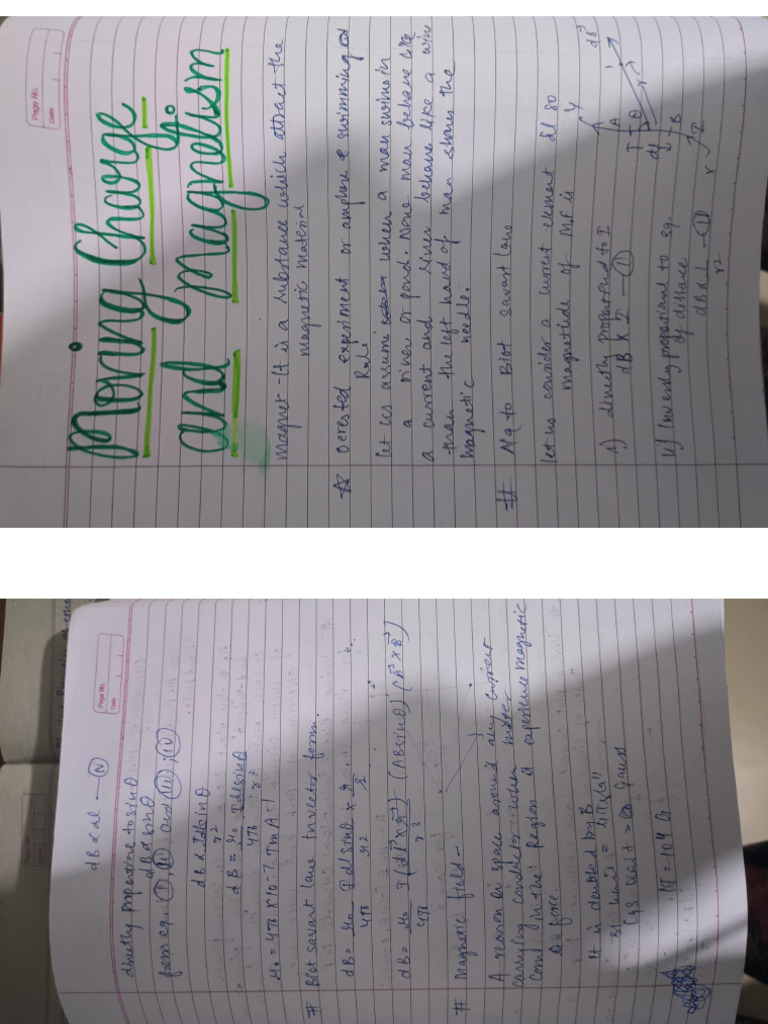 Page No.
Date
Moving Charge
and Magnetism
magnet - It is a substance which attract the
magnetic material
☆ Oersted experiment or amphere swimming
Rule
let us assume when a man swime in
a river or pond. None man behave like
a current and river behave like a wire
than the left hand of man shown the
magnetic needle.
# A/q to Biot Savart law
let us consider a current element dl so
magnitude of M.F is
i) directly proportional to I
dB ∝ I — (I)
ii) Inversly proportional to sq.
of distance
dB ∝ 1/r² — (II)
Y
dB→
A
θ
r
dl
B
I
x
Page No.
Date
dB ∝ dl — (N)
directly proportine to sinθ
dB ∝ sinθ
from eq. (I), (II) and (III), (IV)
dB ∝ Idlsinθ/r²
dB = μ₀/4π Idlsinθ/r²
μ₀ = 4π × 10-7 TmA-1
# Biot savart law In vector form.
dB = μ₀/4π Idlsinθ/r² × r/r
dB = μ₀/4π I(dl→×r→)/r³ (ABsinθ) (A→×B→)
# Magnetic field -
A reason or space around any current
carrying conductor when mover
come in the Region it experience magnetic
force.
It is denoted by B
SI unit = "Tesla"
CGS unit = Gauss
1T = 104 G